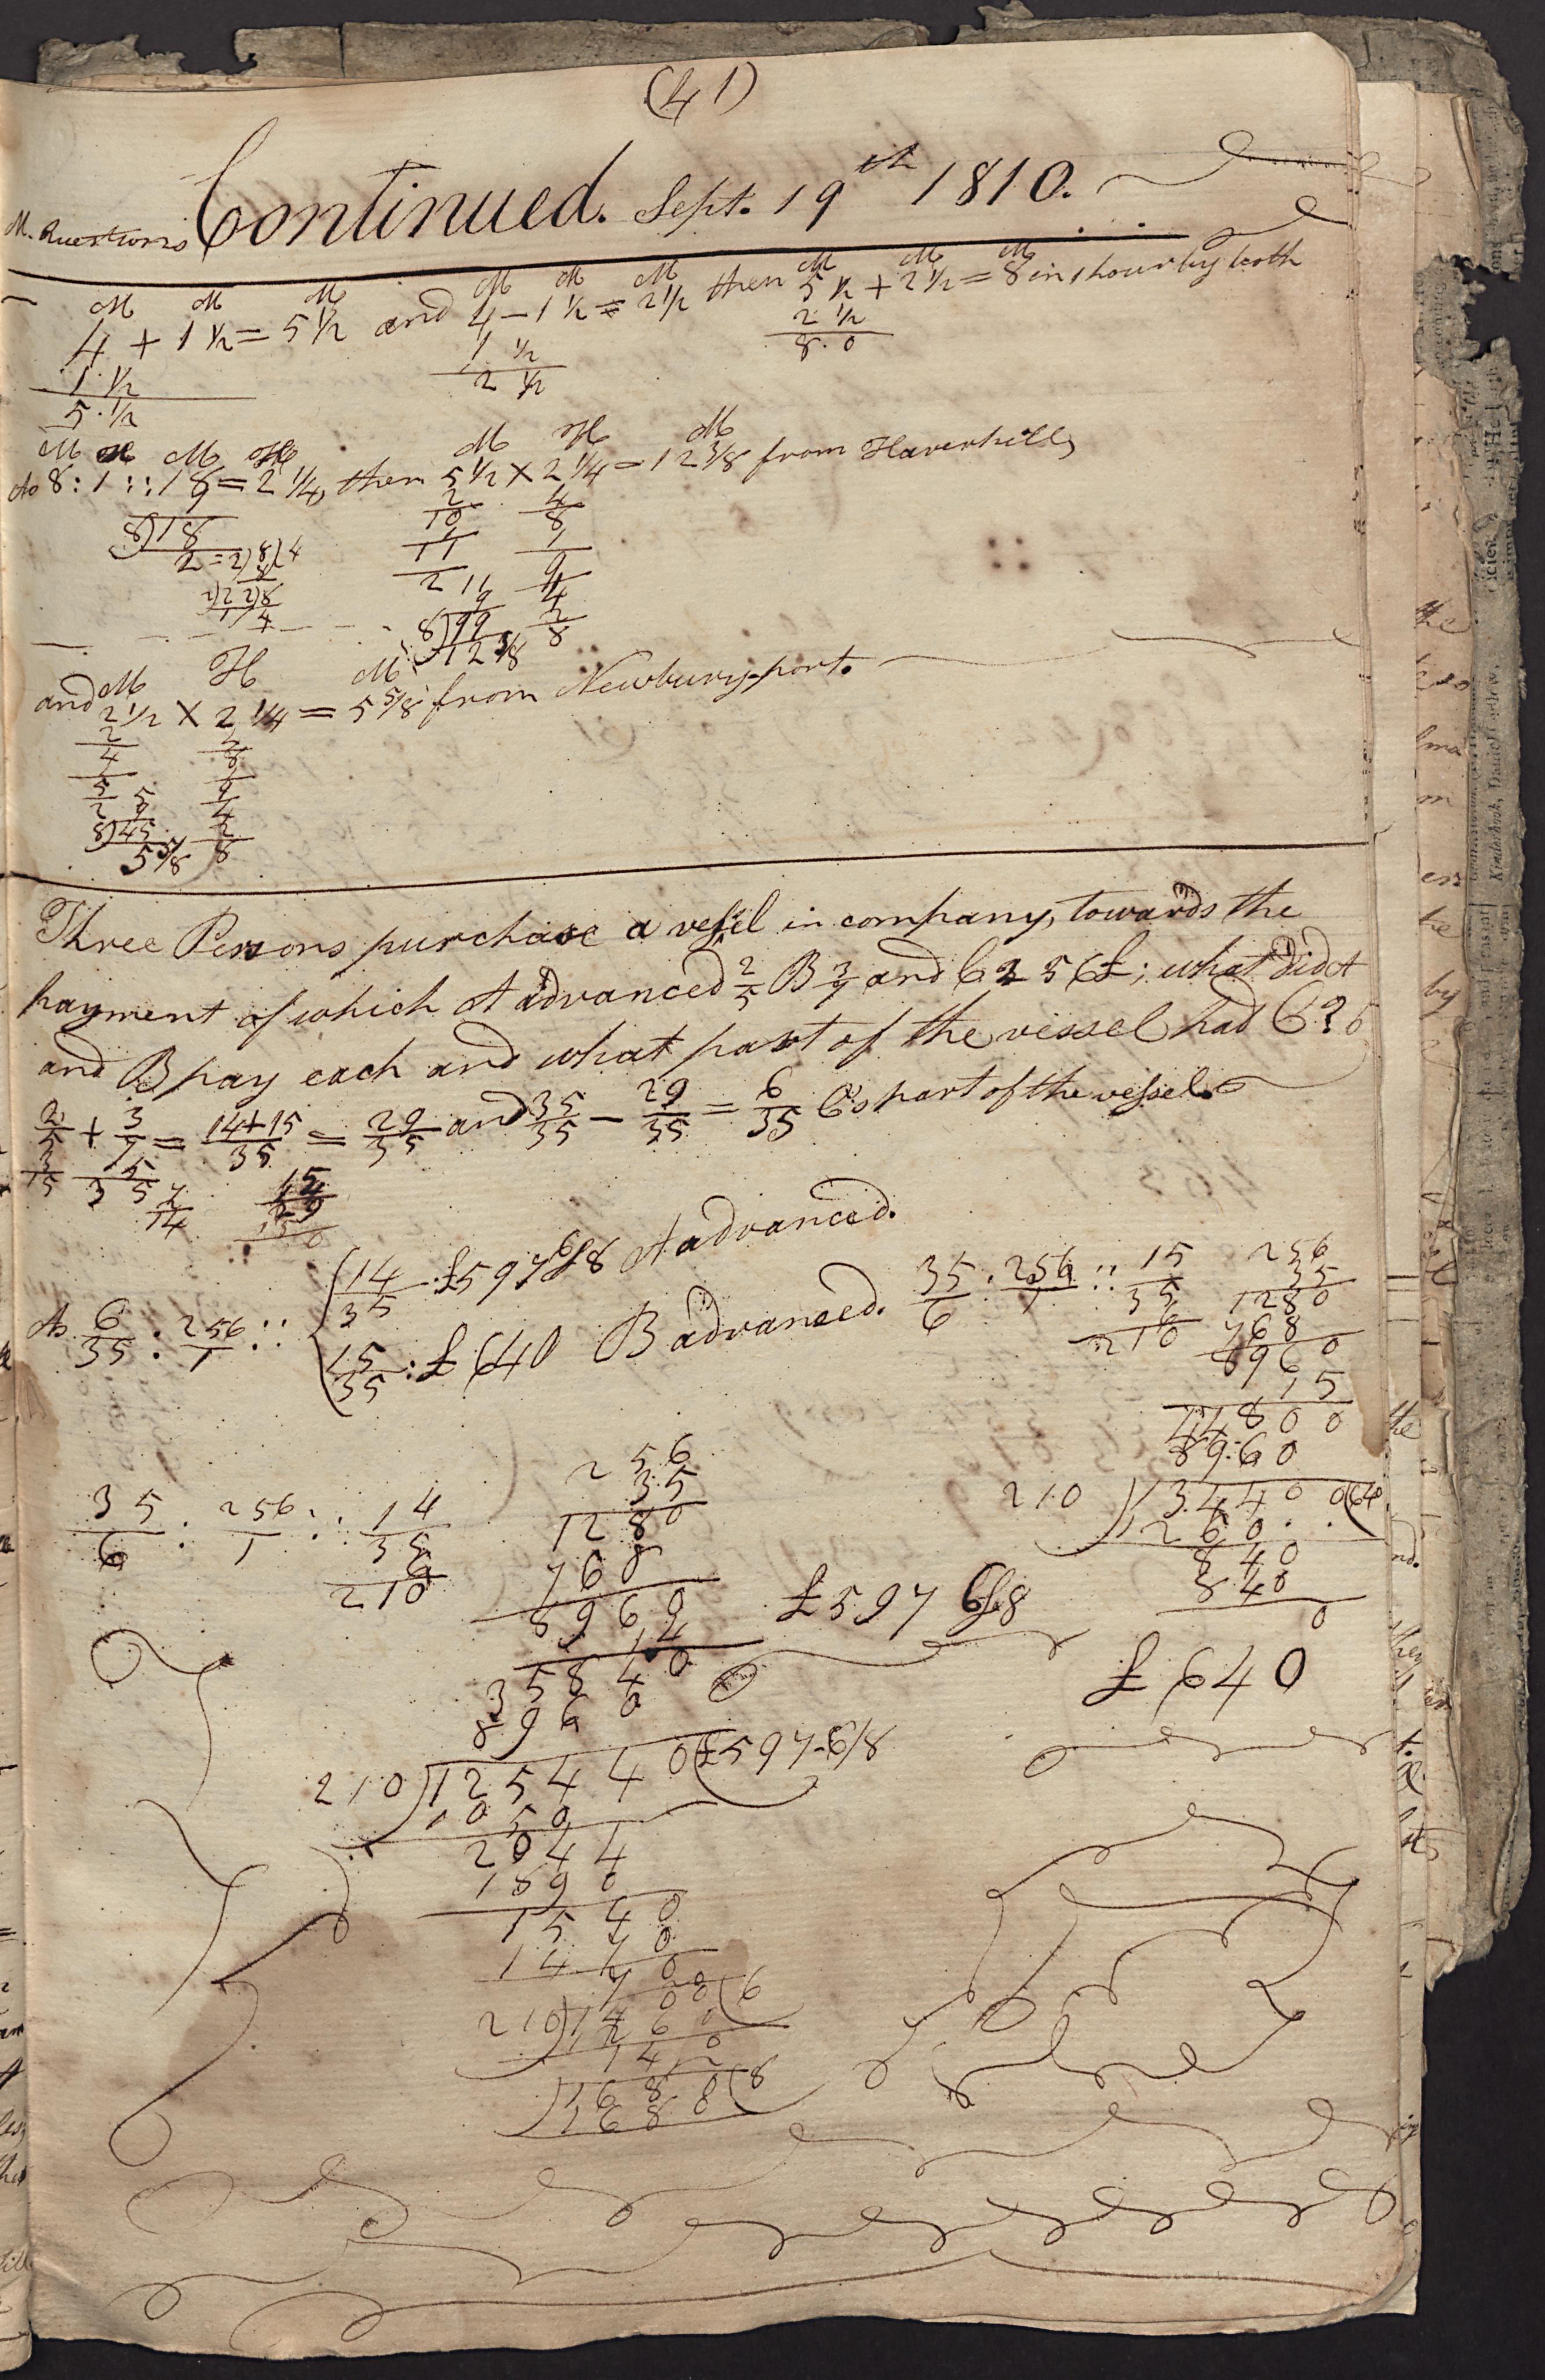 (41)
M. Questions Continued. Sept. 19th 1810.
M M M M M M M M M
4 + 1 1/2 = 5 1/2 and 4 - 1 1/2 = 2 1/2 then 5 1/2 + 2 1/2 = 8 in 1 hour by both
1 1/2 1 1/2 2 1/2
5 . 1/2 2 1/2 8 . 0
M H M H M H M
As 8 : 1 :: 18 = 2 1/4, then 5 1/2 X 2 1/4 = 12 3/8 from Haverhill,
8)18 2 4
2 = 2)8)4 10 8
8 1 1
2)2 2)8 11 9
1/4 2 11 4
9 4 2
8)99 8
12 3/8
M H M
and 2 1/2 X 2 1/4 = 5 5/8 from Newburyport.
2
4 8
1 1
5 5 9
2 9 4
8)45 2
5 5/8 8
Three Persons purchase a vessel in company, towards the
payment of which A advanced 2/5 B 3/7 and C 256£; what did A
and B pay each and what part of the vessel had C?
2/5 + 3/7 = 14+15/35 = 29/35 and 35/35 - 29/35 = 6/35 C's part of the vessel
3 7 5
15 35 5 7
14
As 6/35 : 256/1 :: (14/35 : £597 6/8 A advanced.
(15/35 : £640 B advanced.
35/6 : 256/1 :: 15/35 256
6 35
210 1280
768
8960
15
44800
8960
210)134400(640
1260..
840
840
0
£640
35/6 : 256/1 :: 14/35 256
6 35
210 1280
768
8960
14
35840
8960
£597 6/8
210)125440(£597-6/8
1050
2044
1890
1540
1470
70
210)1400(6
1260
140
12
)1680(8
1680